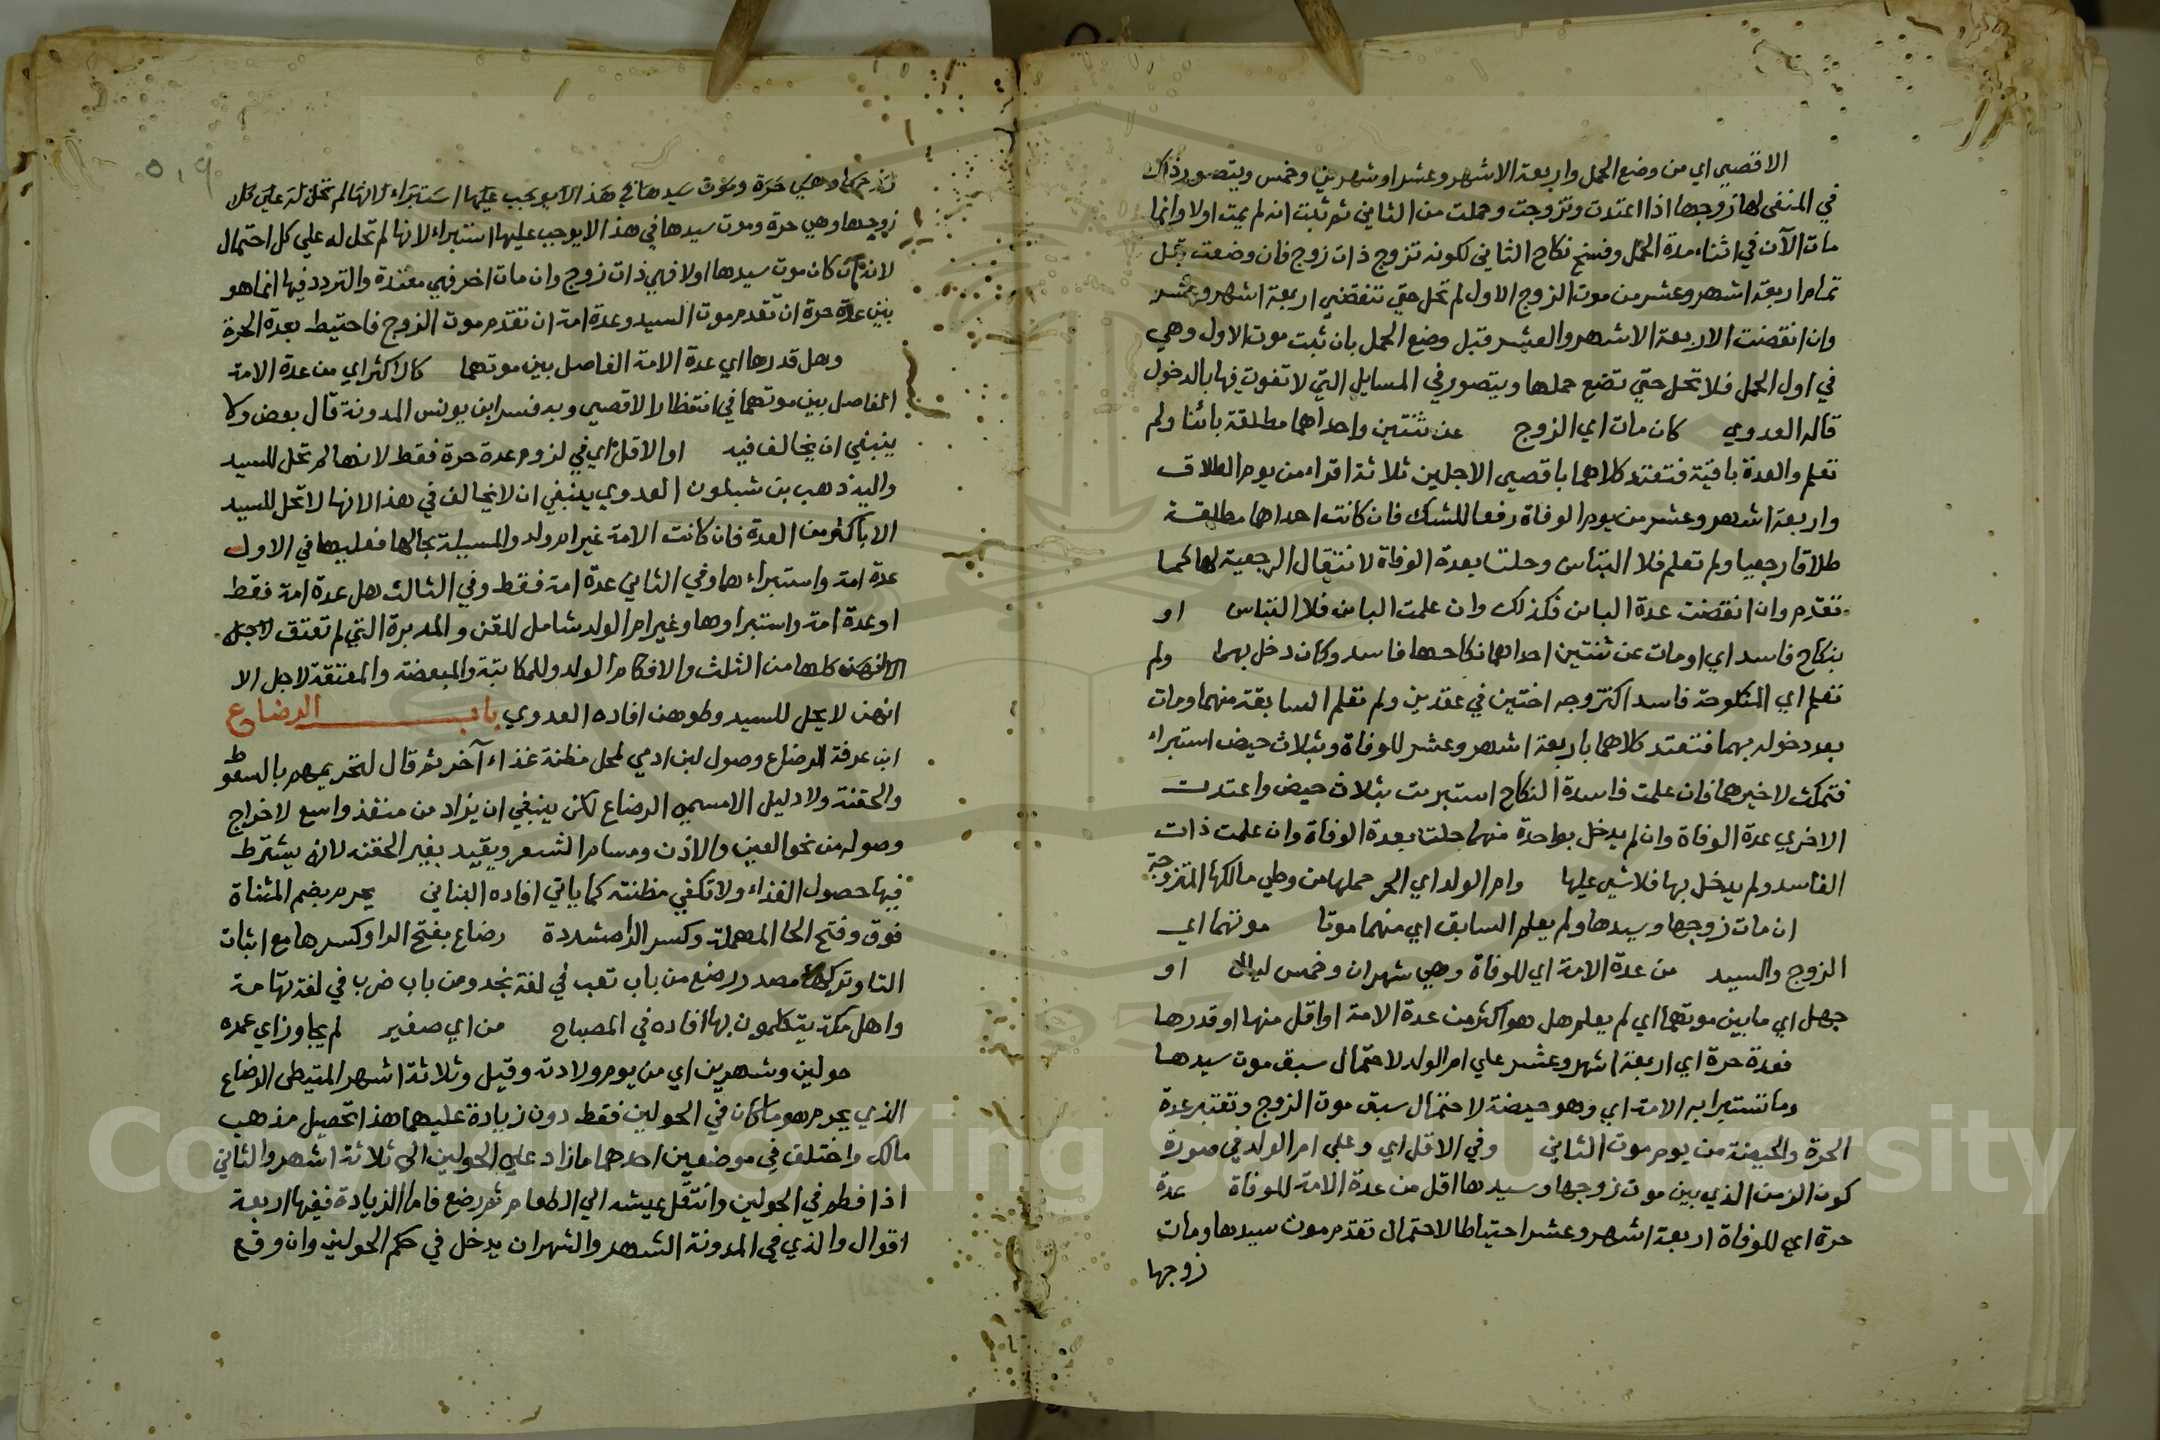 الاقصي اي من وضع الحمل واربعة الاشهر وعشرا وشهرين وخمس ويتصور ذلك
في المنفى لها زوجها اذا اعتدت وتزوجت وحملت من الثاني ثم ثبت انه لم يمت اولا وانما
مات الآن في اثناء مدة الحمل وفسخ نكاح الثاني لكونه تزوج ذات زوج فان وضعت قبل
تمام اربعة اشهر وعشر من موت الزوج الاول لم تحل حتي تنقضي اربعة اشهر وعشر
وان انقضت الاربعة الاشهر والعشر قبل وضع الحمل بان ثبت موت الاول وهي
في اول الحمل فلا تحل حتي تضع حملها ويتصور في المسايل التي لا تفوت فيها بالدخول
قاله العدوي كان مات اي الزوج عن ثنتين واحداهما مطلقة بائنا ولم
تعلم والعدة باقية فتعتد كلاهما باقصي الاجلين ثلاثة اقراء من يوم الطلاق
واربعة اشهر وعشر من يوم الوفاة رفعا للشك فان كانت احداهما مطلقة
طلاقا رجعيا ولم تعلم فلا التباس وحلتا بعدة الوفاة لانتقال الرجعية لها كما
تقدم وان انقضت عدة البائن فكذلك وان علمت البائن فلا التباس او
بنكاح فاسد اي او مات عن ثنتين احداهما نكاحها فاسد وكان دخل بهما ولم
تعلم اي المنكوحة فاسدا كتزوجه اختين في عقدين ولم تعلم السابقة منهما ومات
بعد دخوله بهما فتعتد كلاهما باربعة اشهر وعشر للوفاة وبثلاث حيض استبراء
فتمكث لاخيرهما فان علمت فاسدة النكاح استبرت بثلاث حيض واعتدت
الاخري عدة الوفاة وان لم يدخل بواحدة منهما حلتا بعدة الوفاة وان علمت ذات
الفاسد ولم يدخل بها فلا شي عليها وام الولد اي الحر حملها من وطي مالكها المتزوجة
ان مات زوجها وسيدها ولم يعلم السابق اي منهما موتا موتهما اي
الزوج والسيد من عدة الامة اي للوفاة وهي شهران وخمس ليال او
جهل اي ما بين موتهما اي لم يعلم هل هو اكثر من عدة الامة او اقل منها او قدرها
فعدة حرة اي اربعة اشهر وعشر علي ام الولد لاحتمال سبق موت سيدها
وما تستبرا به الامة اي وهو حيضة لاحتمال سبق موت الزوج وتعتبر عدة
الحرة والحيضة من يوم موت الثاني وفي الاقل اي وعلي ام الولد في صورة
كون الزمن الذي بين موت زوجها وسيدها اقل من عدة الامة للوفاة عدة
حرة اي للوفاة اربعة اشهر وعشرا احتياطا لاحتمال تقدم موت سيدها ومات
زوجها
وهي حرة وموت سيدها في هذا لا يوجب عليها استبراء لانها لم تحل له علي كل
زوجها وهي حرة وموت سيدها في هذا لا يوجب عليها استبراء لانها لم تحل له علي كل احتمال
لانه ان كان موت سيدها اولا فهي ذات زوج وان مات اخر فهي معتدة والتردد فيها انما هو
بين عدة حرة ان تقدم موت السيد وعدة امة ان تقدم موت الزوج فاحتيط بعدة الحرة
وهل قدرها اي عدة الامة الفاصل بين موتهما كالاكثر اي من عدة الامة
الفاصل بين موتهما في انتظار الاقصي وبه فسر ابن يونس المدونة قال بعض ولا
ينبغي ان يخالف فيه او الاقل اي في لزوم عدة حرة فقط لانها لم تحل للسيد
واليه ذهب بن شبلون العدوي ينبغي ان لا يخالف في هذا لانها لا تحل للسيد
الا باكثر من العدة فان كانت الامة غير ام ولد والمسيلة بحالها فعليها في الاول
عدة امة واستبراءها وفي الثاني عدة امة فقط وفي الثالث هل عدة امة فقط
او عدة امة واستبراوها وغير ام الولد شامل للقن والمدبرة التي لم تعتق لاجل
كلها من الثلث والا فكام الولد وللمكاتبة والمبعضة والمعتقة لاجل الا
انهن لا يحل للسيد وطوهن افاده العدوي باب الرضاع
ابن عرفة الرضاع وصول لبن ادمي لمحل مظنة غذاء آخر ثم قال لتحريمهم بالسعوط
والحقنة ولا دليل الا مسمي الرضاع لكن ينبغي ان يزاد من منفذ واسع لاخراج
وصوله من نحو العين والاذن ومسام الشعر ويقيد بغير الحقنة لانه يشترط
فيها حصول الغذاء ولا تكفي مظنته كما ياتي افاده البناني يحرم بضم المثناة
فوق وفتح الحا المهملة وكسر الرا مشددة رضاع بفتح الرا وكسرها مع اثبات
التا وتركها مصدر رضع من باب تعب في لغة نجد ومن باب ضرب في لغة تهامة
واهل مكة يتكلمون بها افاده في المصباح من اي صغير لم يجاوز اي عمره
حولين وشهرين اي من يوم ولادته وقيل وثلاثة اشهر المتيطي الرضاع
الذي يحرم هو ما كان في الحولين فقط دون زيادة عليهما هذا تحصيل مذهب
مالك واختلف في موضعين احدهما ما زاد علي الحولين الي ثلاثة اشهر والثاني
اذا فطم في الحولين وانتقل عيشه الي الطعام ثم رضع فاما الزيادة ففيها اربعة
اقوال والذي في المدونة الشهر والشهران يدخل في حكم الحولين وان وقع
٥١٩
Copyright © King Saud University
1957